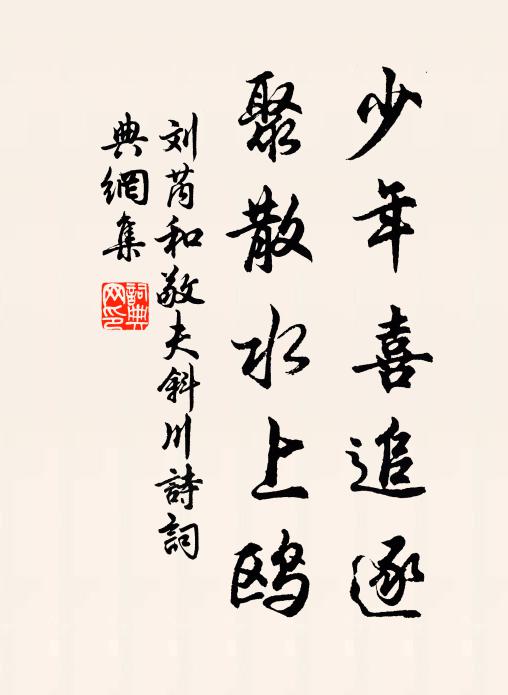 少年喜追逐
聚散水上鸥
刘芮和敬夫斜川詩詞
典網集
詞典网印